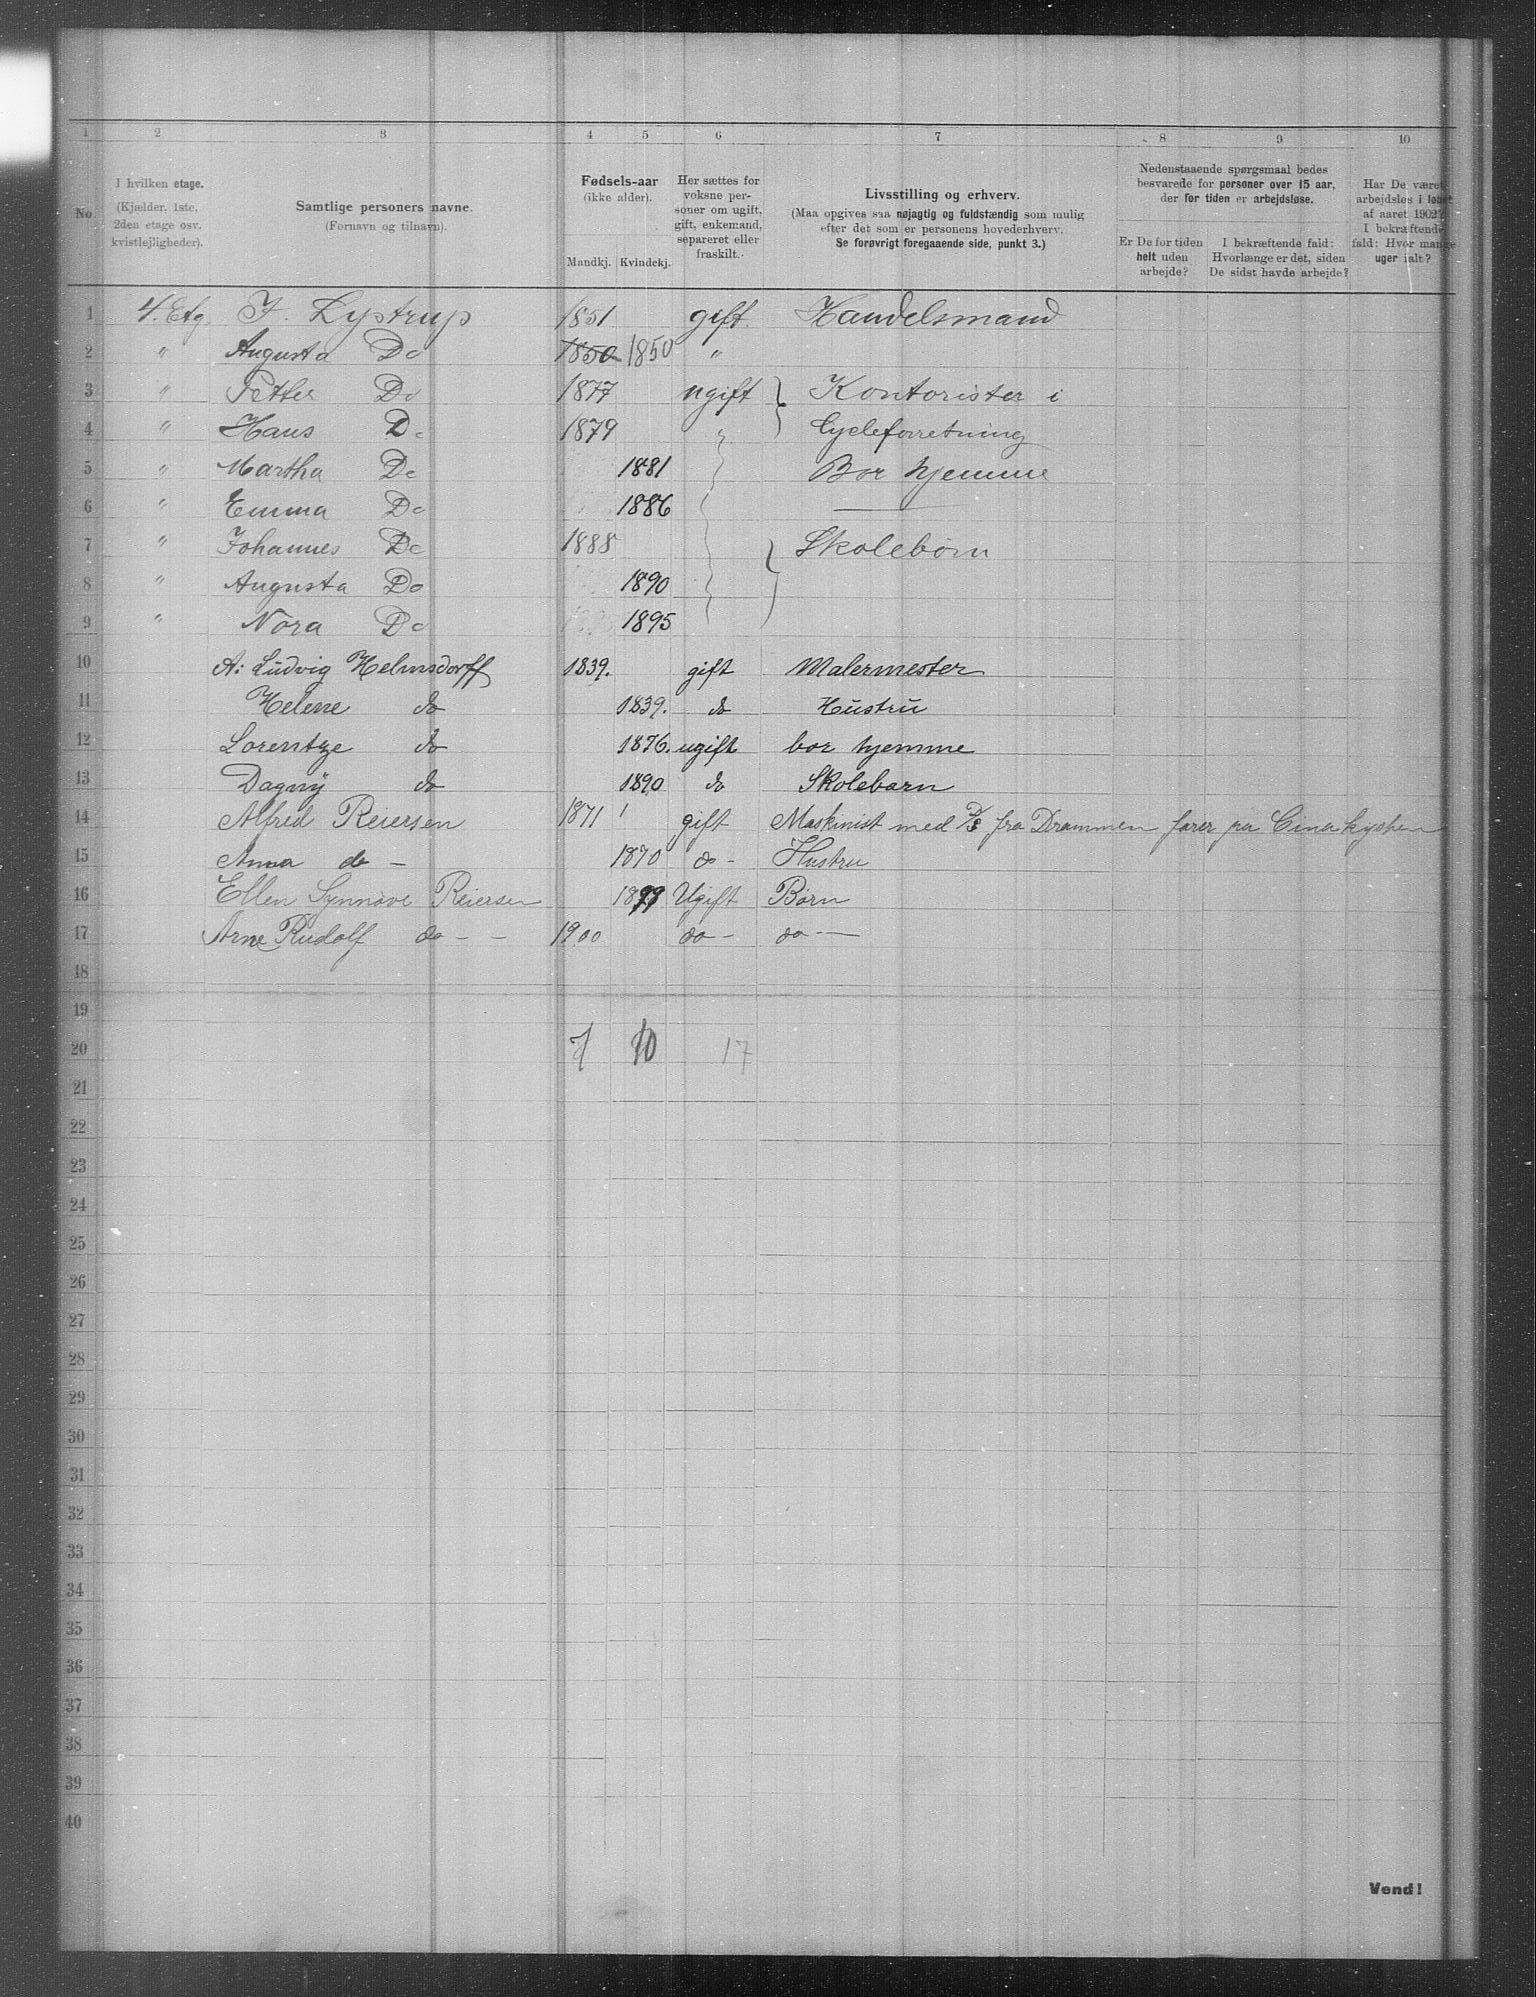 1 2 3 4 5 6 7 8 9 10
No.
I hvilken etage.
(Kjælder, 1ste,
2den etage osv.
kvistlejligheder).
Samtlige personers navne.
(Fornavn og tilnavn).
Fødsels-aar
(ikke alder).
Mandkj. Kvindekj.
Her sættes for
voksne per-
soner om ugift,
gift, enkemand,
separeret eller
fraskilt.
Livsstilling og erhverv.
(Maa opgives saa nøjagtig og fuldstændig som mulig
efter det som er personens hovederhverv.
Se forøvrigt foregaaende side, punkt 3.)
Nedenstaaende spørgsmaal bedes
besvarede for personer over 15 aar,
der for tiden er arbejdsløse.
Er De for tiden
helt uden
arbejde?
I bekræftende fald:
Hvorlænge er det, siden
De sidst havde arbejde?
Har De været
arbejdsløs i løbet
af aaret 1902?
I bekræftende
fald: Hvor mange
uger ialt?
1 4. Etg. J. Lystrup 1851 gift Handelsmand
2 " Augusta Do 1850 1850 "
3 " Petter Do 1877 ugift } Kontorister i
4 " Hans Do 1879 " Cycleforretning
5 " Martha Do 1881 Bor hjemme
6 " Emma Do 1886 —
7 " Johannes Do 1888 } Skolebørn
8 " Augusta Do 1890
9 " Nora Do 1895
10 A: Ludvig Helmsdorff 1839. gift Malermester
11 Helene do 1839. do Hustru
12 Lorentze do 1876. ugift bor hjemme
13 Dagny do 1890 do Skolebarn
14 Alfred Reiersen 1871 gift Maskinist med D/S fra Drammen farer paa Cinakysten
15 Anna do - 1870 do - Hustru
16 Ellen Synnøve Reiersen 1899 Ugift Børn
17 Arne Rudolf do - - 1900 do - do -
18
19
20 7 10 17
21
22
23
24
25
26
27
28
29
30
31
32
33
34
35
36
37
38
39
40
Vend!